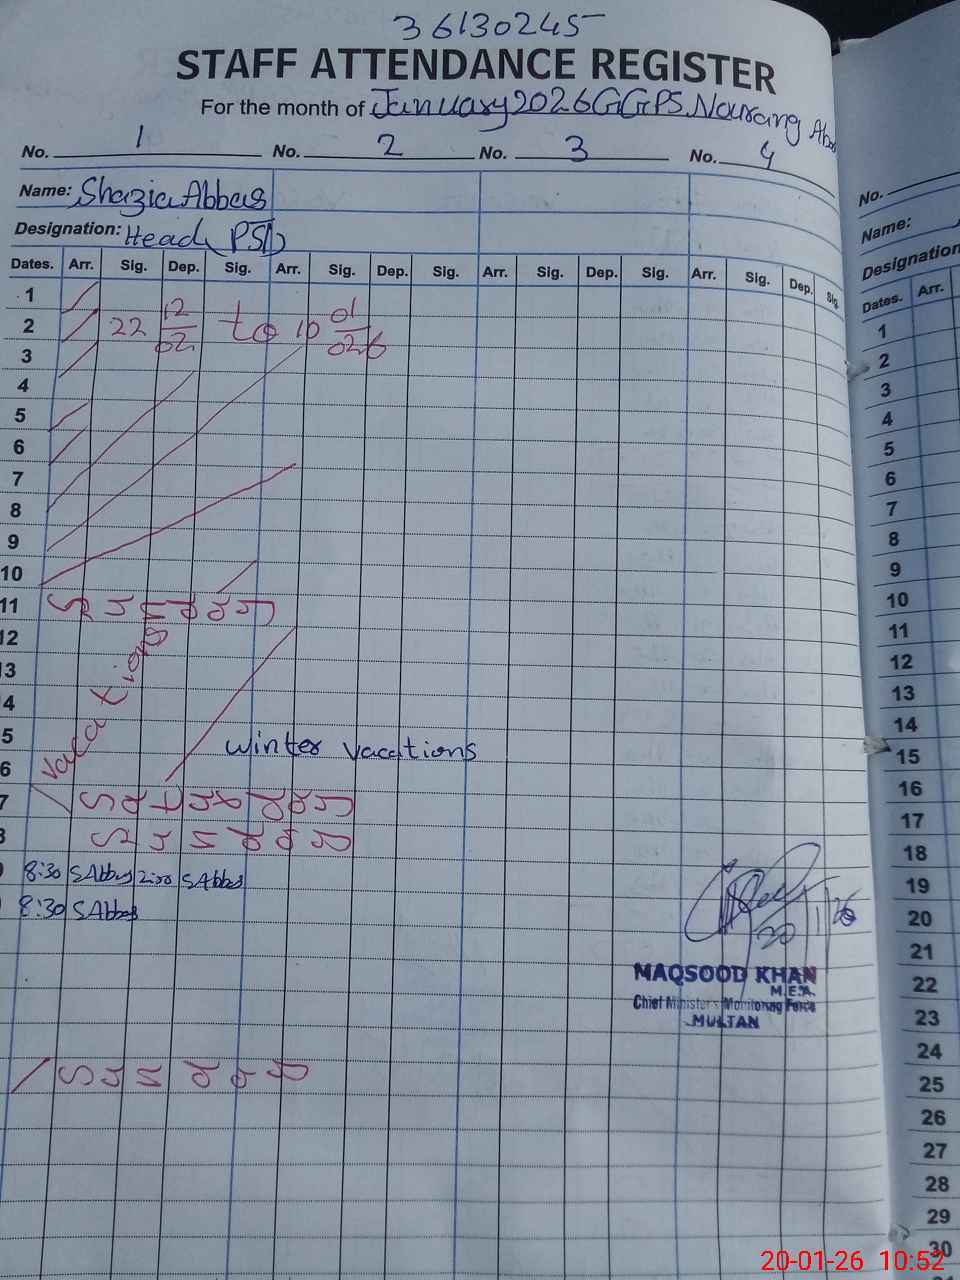 36130245
STAFF ATTENDANCE REGISTER
For the month of January 2026 GGPS. Nourang Abas
No. 1 No. 2 No. 3 No. 4
Name: Shazia Abbas
Designation: Head (PST)
Dates. Arr. Sig. Dep. Sig. Arr. Sig. Dep. Sig. Arr. Sig. Dep. Sig. Arr. Sig. Dep. Sig.
1
2 22 12 to 10 01
3
4
5
6
7
8
9
10
11 Sunday
12
3
4 Vacations
5 Winter Vacations
6
7 Saturday
8 Sunday
8:30 SAbbas SAbbas
8:30 SAbbas
MAQSOOD KHAN
M.E.A.
Chief Minister's Monitoring Force
MULTAN
20/1/26
Sunday
No.
Name:
Designation
Dates. Arr.
1
2
3
4
5
6
7
8
9
10
11
12
13
14
15
16
17
18
19
20
21
22
23
24
25
26
27
28
29
30
20-01-26 10:52